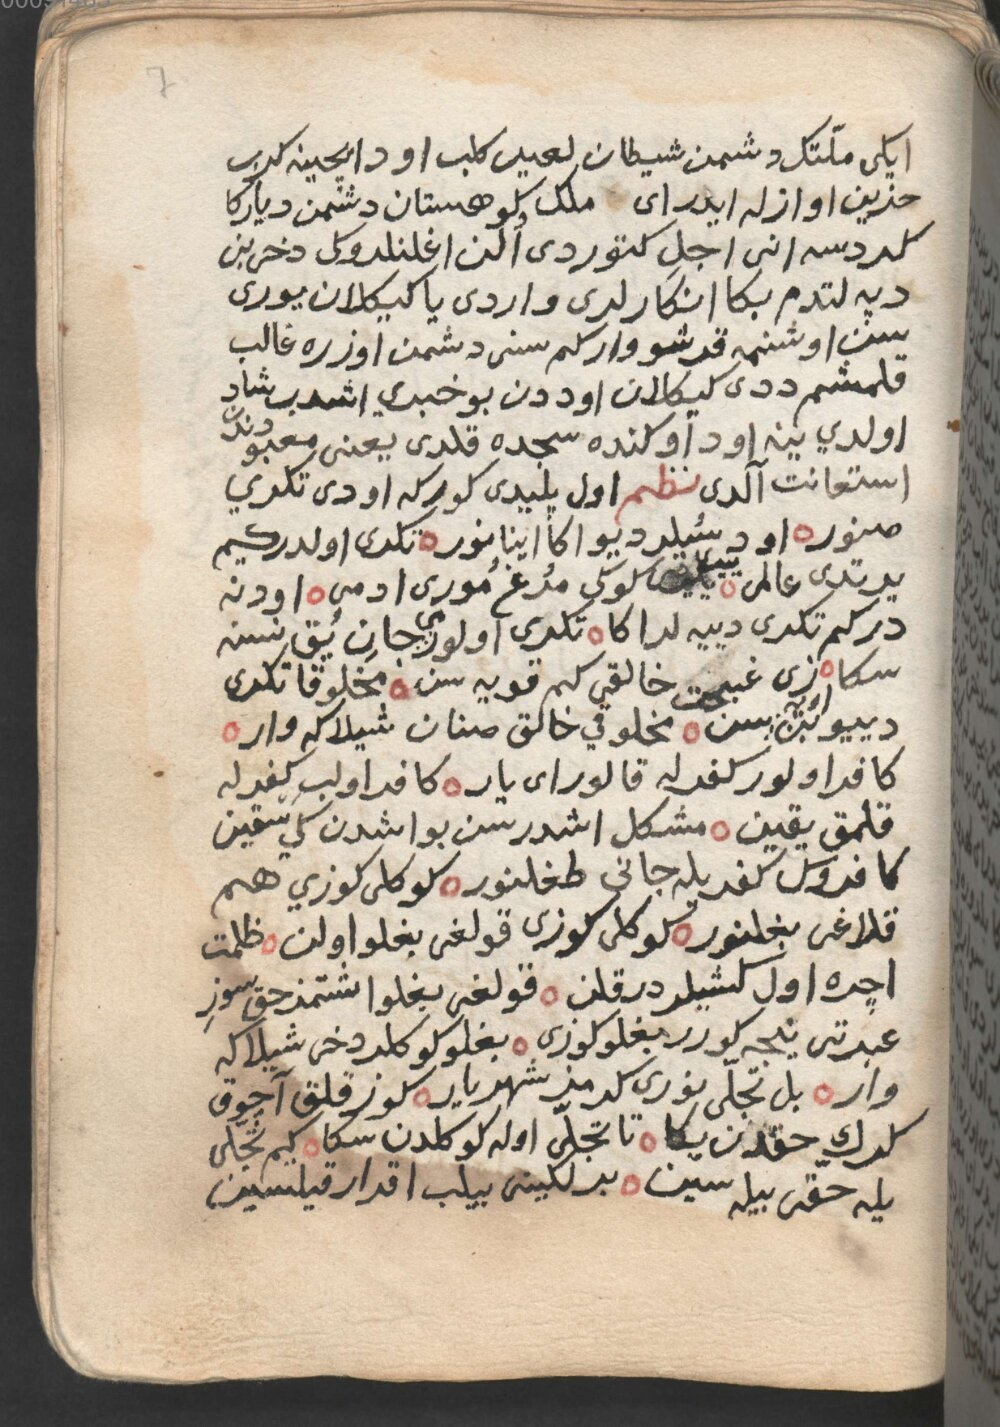 ایکی ملّتک دشمن شیطان لعین کلب اود ایچینه کرب
حزین اوازله ایدر ای ملک کوهستان دشمن دیارکا
کلردسه انی اجل کتوردی اُلن اغلنلدوکی دخی بن
دیه لتدم بکا انکارلری واردی یا کیکلان یوری
سن اوشنمه قدشو وارکم سنی دشمن اوزره غالب
قلمشم ددی کیکالان اوددن بو خبری اشدب شاد
اولدي ینه اود اوکنده سجده قلدی یعنی معبودندن
استعانت آلدی نظم اول پلیدی کورکه اودی تکري
صنور ه اود سُیلر دیو اکا اینانور ه تکری اولدرکیم
یرتدی عالمی ه کوکی مُرغ مُوری ادمی ه اودنه
درکم تکری دییه لر اکا ه تکری اولور می جان یُق نسنه
سکا ه زی غبی خالقي کم قویه سن ه مخلوقا تکری
دییو سن ه مخلوقي خالق صنان شیلاکه وار ه
کافر اولور کفرله قالور ای یار ه کافر اولب کفرله
قلمق یقین ه مشکل اشدر سن بو اشدن کي سقین
کافروک کفریله جانی طغلنور ه کوکلی کوزي هم
قلاغی بغلنور ه کوکلی کوزی قولغی بغلو اولن ه ظلمت
اچره اول کشیلر در قلن ه قولغی بغلو اشتمز حق سوز
عبرتی ینجه کورر بغلو کوزی ه بغلو کوکلر دخی شیلاکه
وار ه بل تجلّی نوری کرمز شهریار ه کوز قلق آچوق
کرك حقدن یکا ه تا تجلّی اوله کوکلدن سکا ه کیم تجلّی
یله حقّی بیله سین ه بر لکینی بیلب اقرار قیلسین